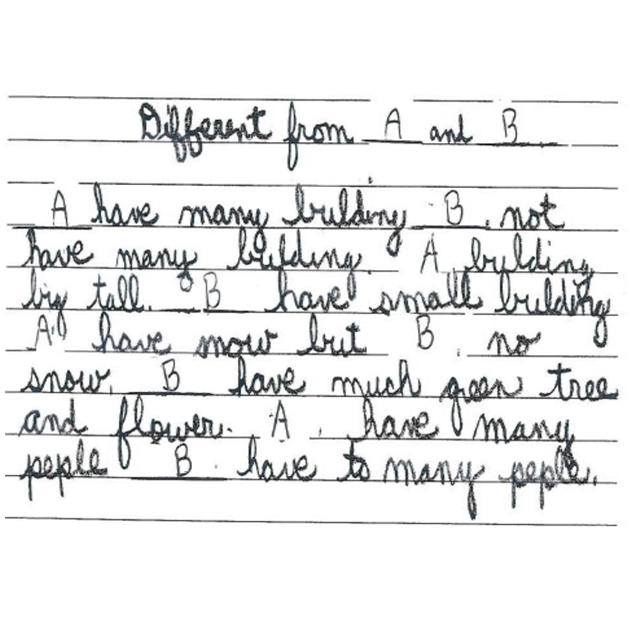 Different from A and B
A have many bulding. B not
have many bulding. A bulding
big tall. B have small bulding
A have snow but B no
snow. B have much green tree
and flower. A have many
peple B have to many peple.